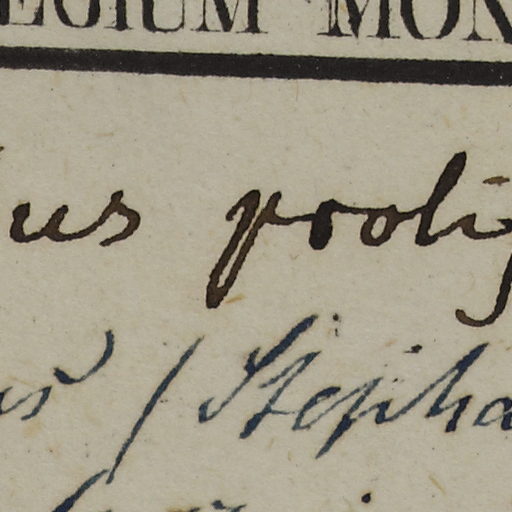 EGIUM MON
us prolif
us / Stepha